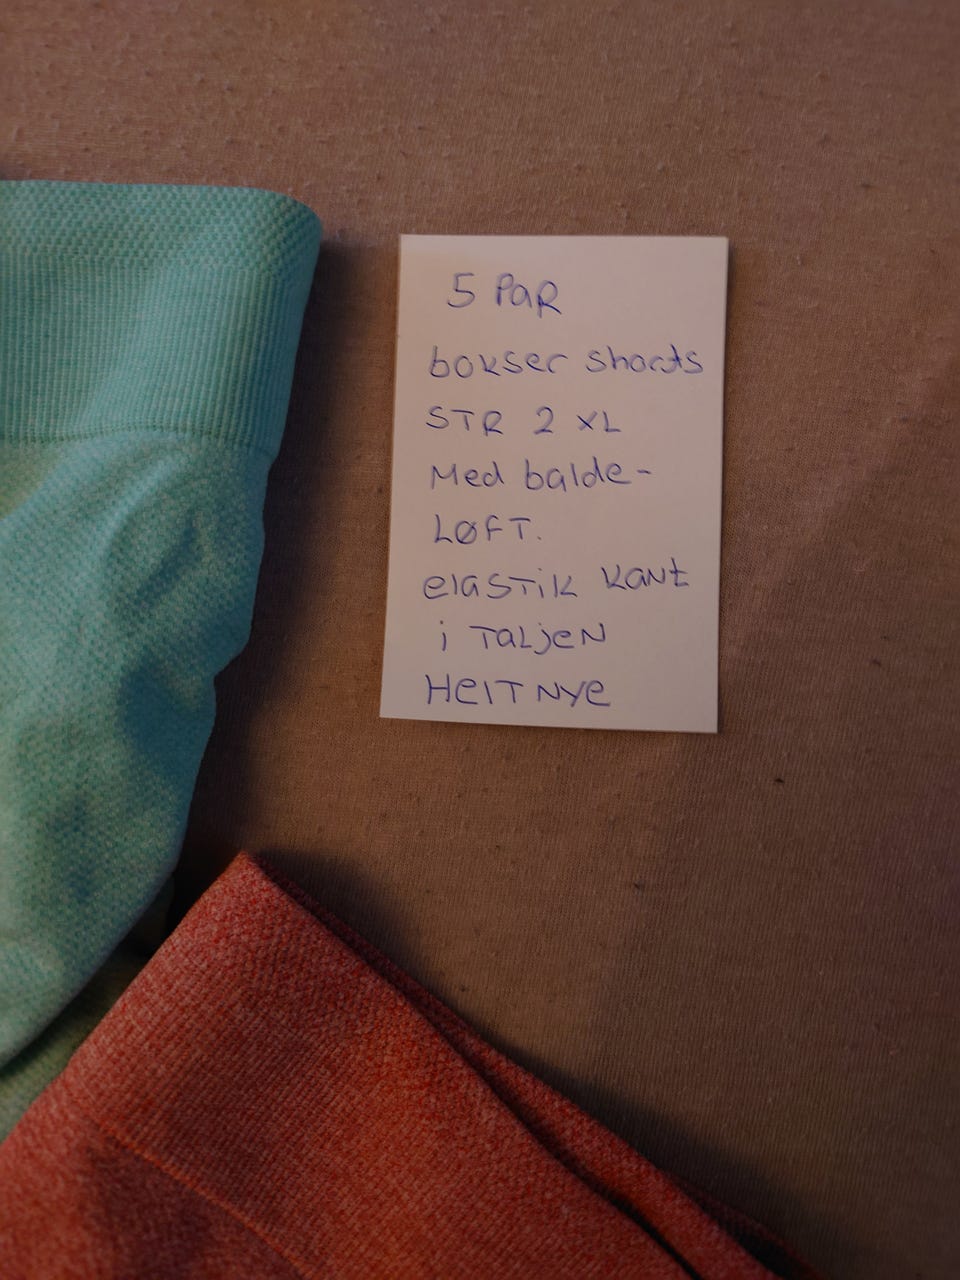 5 PaR
bokser shorts
STR 2 XL
Med balde-
LØFT.
elaSTik kant
i TaLjeN
HelT NYe